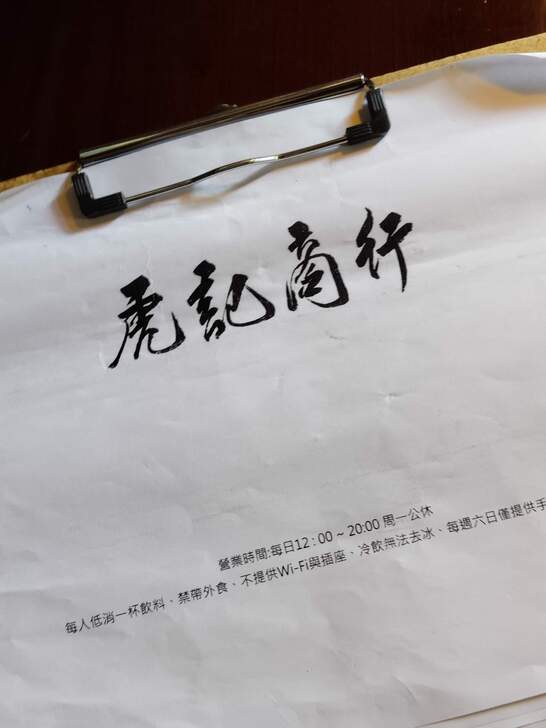 虎記商行
營業時間:每日12:00 ~ 20:00 周一公休
每人低消一杯飲料、禁帶外食、不提供Wi-Fi與插座、冷飲無法去冰、每週六日僅提供手